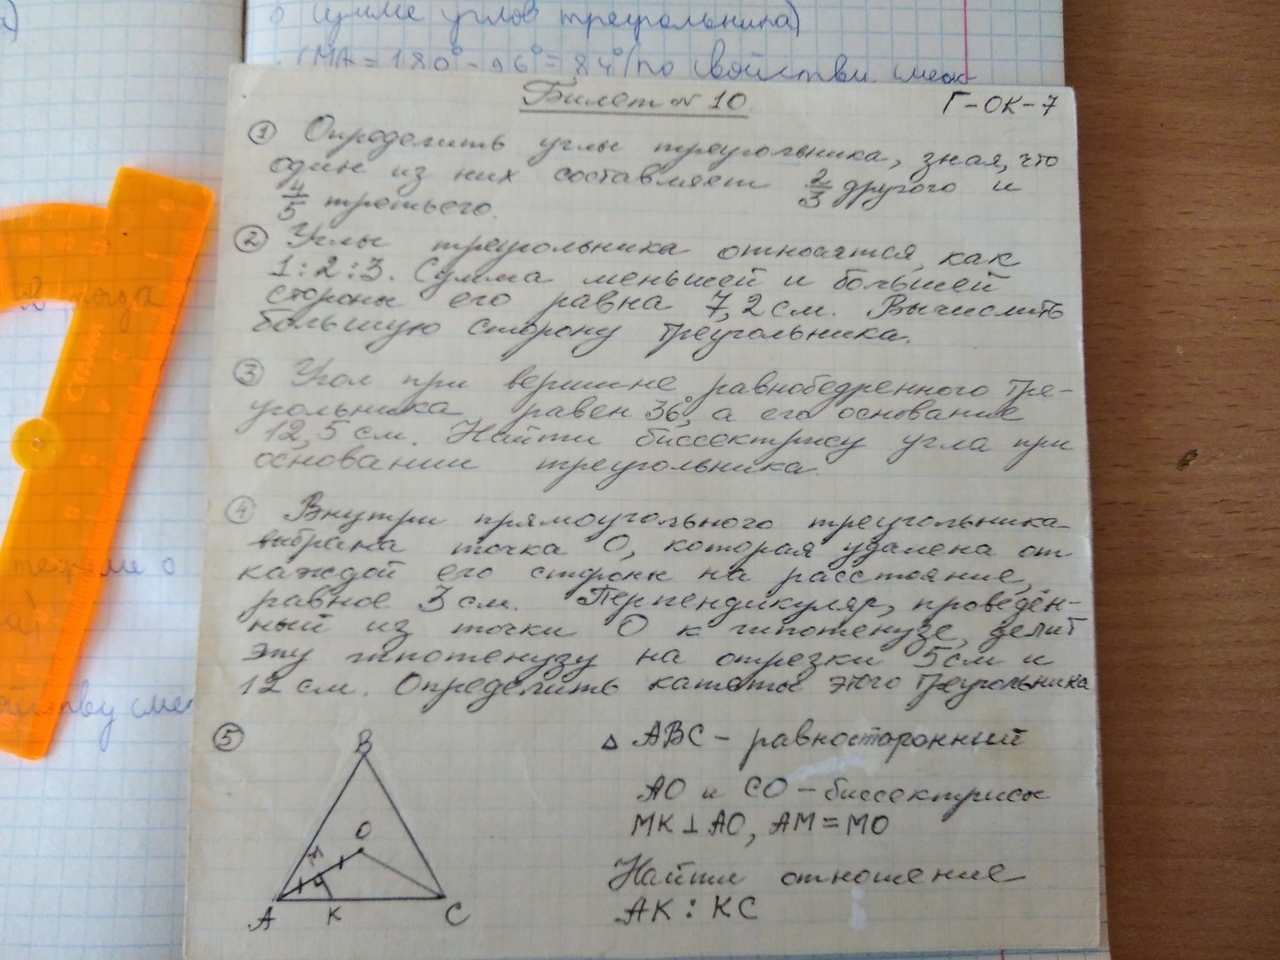 о сумме углов треугольника)
= 180° - 96° = 84° (по свойству смеж-
Билет № 10.
Г-ОК-7
① Определить углы треугольника, зная, что
один из них составляет 2/3 другого и
4/5 третьего.
② Углы треугольника относятся, как
1:2:3. Сумма меньшей и большей
стороны его равна 7,2 см. Вычислить
большую сторону треугольника.
③ Угол при вершине равнобедренного тре-
угольника равен 36°, а его основание
12,5 см. Найти биссектрису угла при
основании треугольника.
④ Внутри прямоугольного треугольника
выбрана точка О, которая удалена от
каждой его сторон на расстояние,
равное 3 см. Перпендикуляр, проведён-
ный из точки О к гипотенузе, делит
эту гипотенузу на отрезки 5 см и
12 см. Определить катеты этого треугольника
⑤
△ АВС - равносторонний
АО и СО - биссектрисы
МК ⊥ АО, АМ = МО
Найти отношение
АК : КС
В
О
М
А
К
С
СТАММ